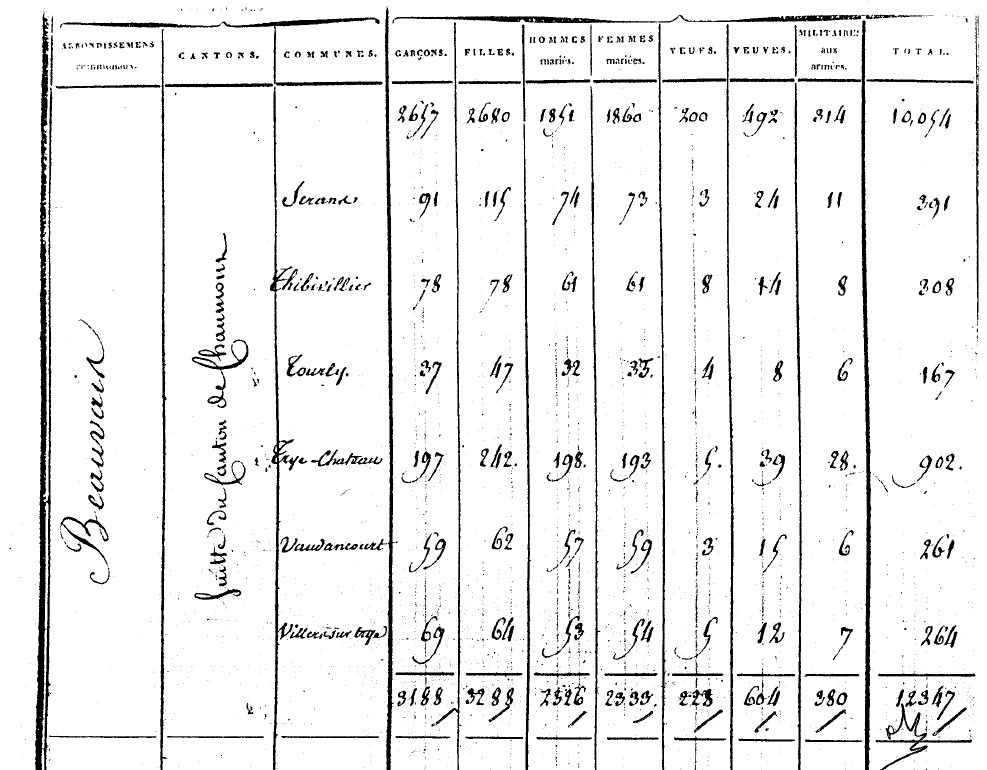 ARRONDISSEMENS communaux. CANTONS. COMMUNES. GARÇONS. FILLES. HOMMES mariés. FEMMES mariées. VEUFS. VEUVES. MILITAIRES aux armées. TOTAL.
2657 2680 1851 1860 200 492 314 10,054
Beauvais
Suitte du Canton de Chaumont
Serans 91 115 74 73 3 24 11 391
Thibivillier 78 78 61 61 8 14 8 308
Tourly. 37 47 32 33. 4 8 6 167
Trye-Chateau 197 242. 198. 193 5. 39 28. 902.
Vaudancourt 59 62 57 59 3 15 6 261
Villers sur trye 69 64 53 54 5 12 7 264
3188 3288 2326 2333. 228 604 380 12347